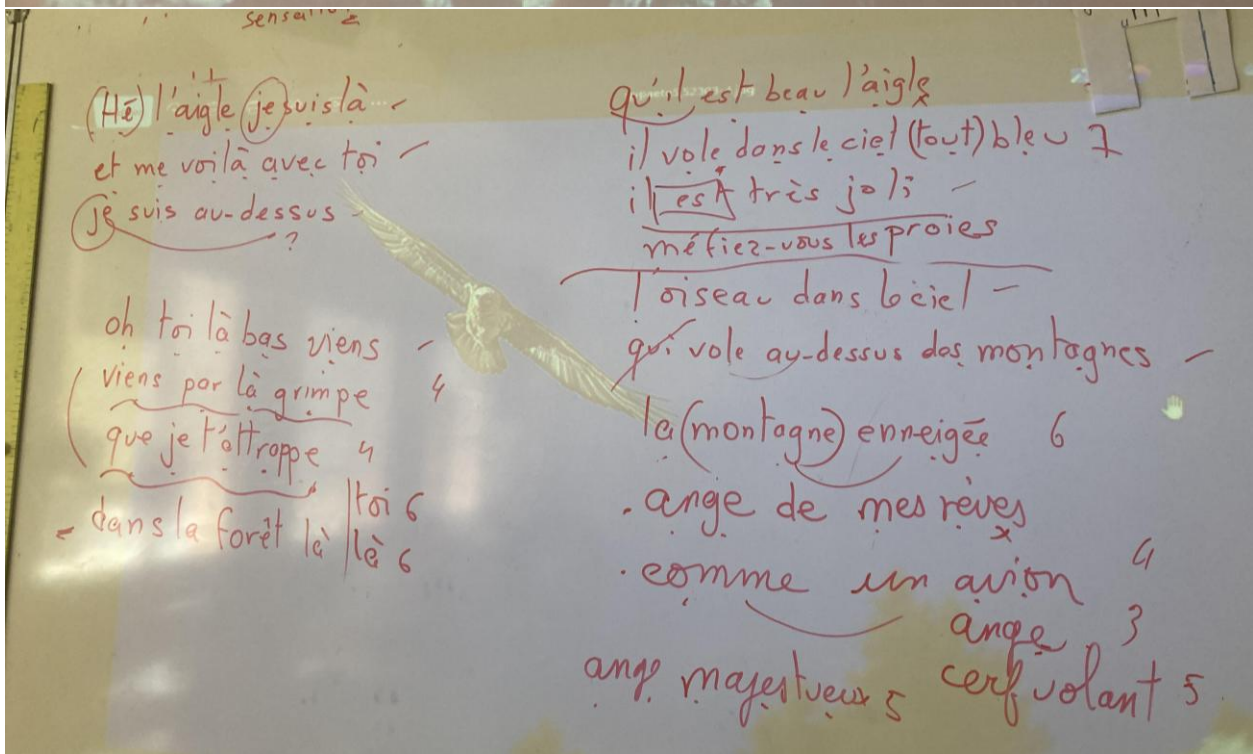 (Hé) l'aigle je suis là
et me voilà avec toi
je suis au-dessus
?
oh toi là bas viens
viens par là grimpe 4
que je t'attrappe 4
dans la forêt là toi 6
là 6
qu'il est beau l'aigle
il vole dans le ciel (tout) bleu 7
il est très joli
méfiez-vous les proies
l'oiseau dans le ciel
qui vole au-dessus des montagnes
la (montagne) enneigée 6
. ange de mes rêves
. comme un avion 4
ange 3
ange majestueux 5 cerf volant 5